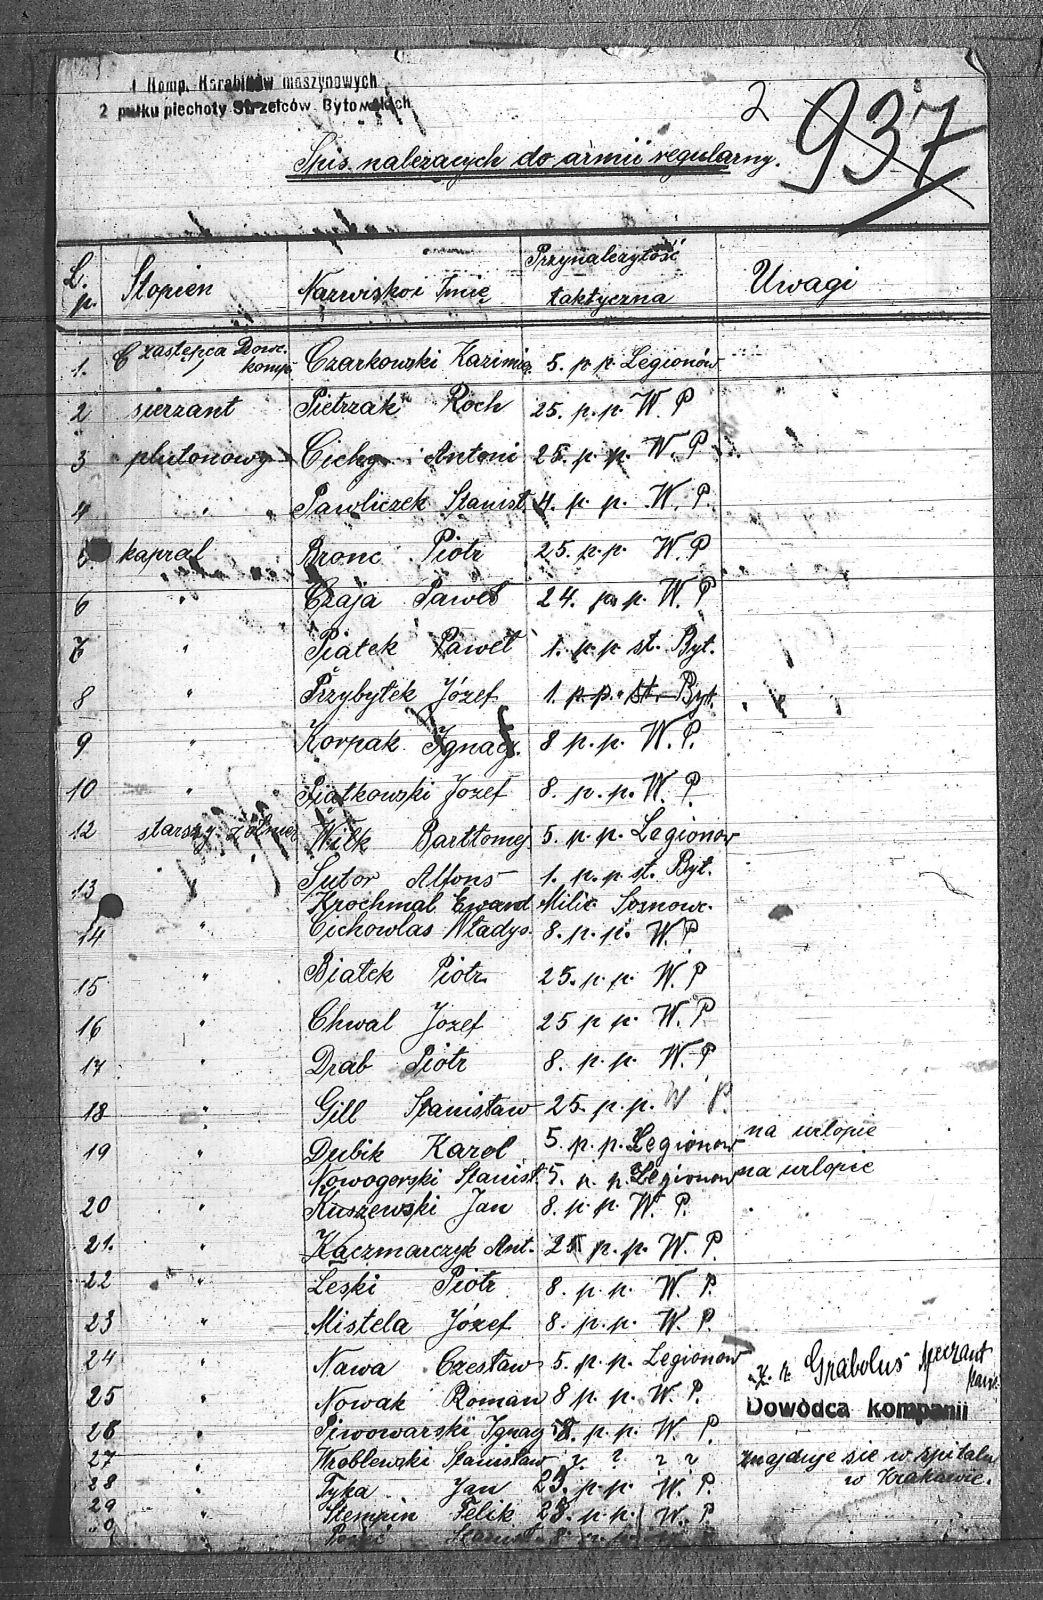 1 Komp. Karabinów maszynowych
2 pułku piechoty Strzelców Bytomskich
2
937
Spis należących do armii regularny.
L. p. Stopień Nazwisko i Imię Przynależytość taktyczna Uwagi
1. zastępca Dowc. komp. Czarkowski Kazimierz 5. p. p. Legionów
2 sierzant Pietrzak Roch 25. p. p. W. P
3 plutonowy Cichy Antoni 25. p. p. W. P.
4 " " Pawliczek Stanisł. 4. p. p. W. P.
5 kapral Bronc Piotr 25. p. p. W. P
6 " Czaja Paweł 24. p. p. W. P
7 " Piątek Paweł 1. p. p. st. Byt.
8 " Przybyłek Józef 1. p. p. st. Byt.
9 " Korpak Ignacy. 8 p. p. W. P.
10 " Piątkowski Józef 8. p. p. W. P.
12 starszy żołnierz Wilk Bartłomej 5. p. p. Legionow
13 " Sutor Alfons 1. p. p. st. Byt.
Krochmal Ewand Milic Sosnowc.
14 " Cichowlas Władys. 8. p. p. W. P
15 " Białek Piotr 25. p. p. W. P
16 " Chwal Jozef 25 p. p. W. P.
17 " Drab Piotr 8. p. p. W. P
18 " Gill Stanisław 25. p. p. W. P.
19 " Dubik Karol 5. p. p. Legionow na urlopie
Nowogorski Stanisł. 5. p. p. Legionow na urlopie
20 " Kuszewski Jan 8. p. p. W. P.
21. " Kaczmarczyk Ant. 25 p. p. W. P.
22 " Leski Piotr 8. p. p. W. P.
23 " Mistela Józef 8. p. p. W. P.
24 " Nawa Czesław 5. p. p. Legionow
z. r. Grabolus sierzant
25 " Nowak Roman 8 p. p. W. P.
Dowódca kompanii
26 " Piwowarski Ignac 8. p. p. W. P.
27 " Wróblewski Stanisław ? ? ? ? znajduje sie w szpitalu
w Krakowie.
28 " Tyka Jan 25. p. p. W. P.
29 " Stempin Felik 25. p. p. W. P.